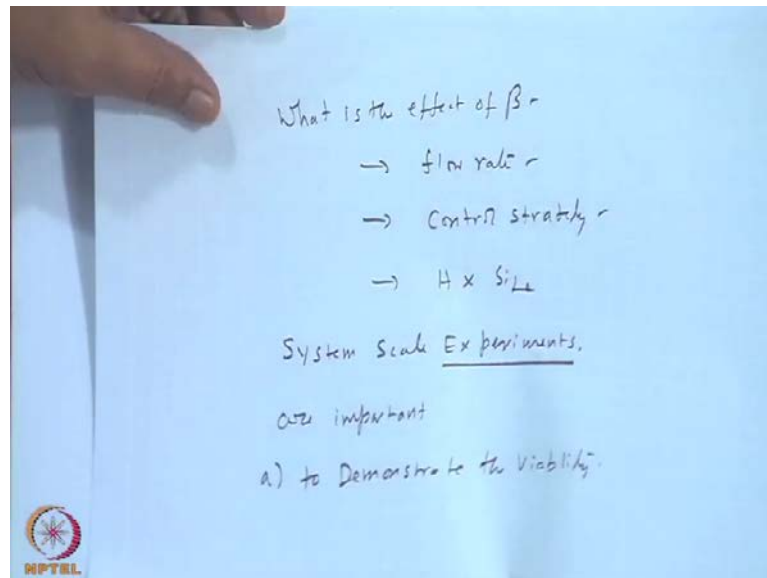 What is the effect of β -
→ flow rate -
→ Control strately -
→ H x Size
System Scale Experiments.
are important
a) to Demonstrate the Viablity.
NPTEL